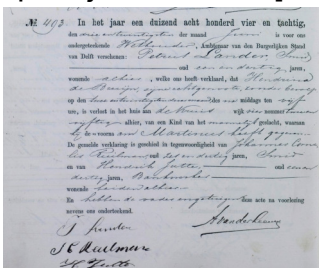 № 493. In het jaar een duizend acht honderd vier en tachtig,
den drie entwintigsten der maand Juni is voor ons
ondergeteekende Wethouder, Ambtenaar van den Burgerlijken Stand
van Delft verschenen: Petrus Landen, Smid
oud een en dertig, jaren,
wonende alhier, welke ons heeft verklaard, dat Hendrina
de Bruijn, zijne echtgenoote, zonder beroep
op den des middags ten vijf
ure, is verlost in het huis aan de wijk vier nommer
vijftig alhier, van een Kind van het mannelijk geslacht, waaraan
hij de voornamen Martinus heeft gegeven.
De gemelde verklaring is geschied in tegenwoordigheid van Johannes
oud zes en dertig jaren, Smid
en van Hendrik oud een en
dertig jaren,
wonende beiden alhier
En hebben de vader en getuigen deze acte na voorlezing
nevens ons onderteekend.
P Landen